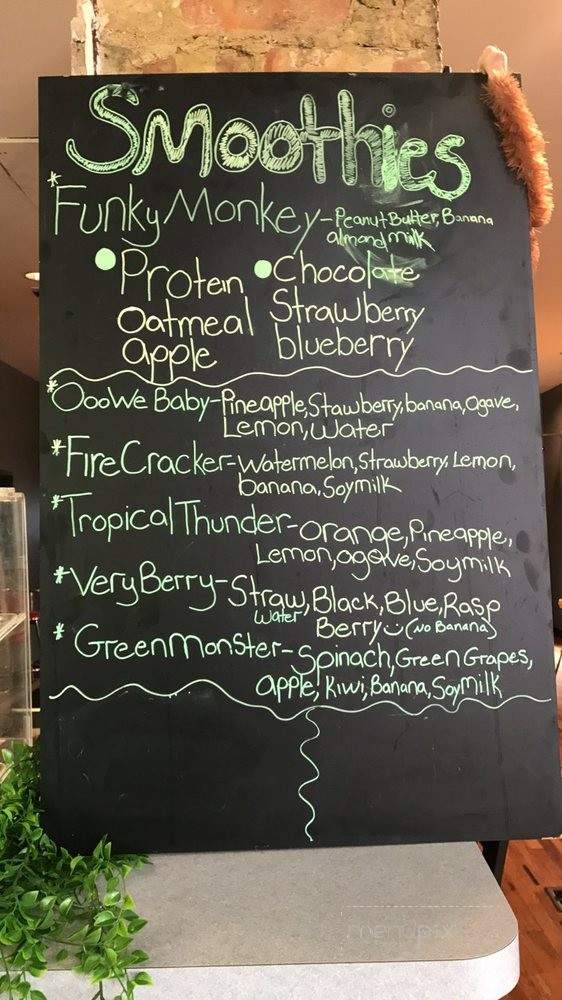 Smoothies
*Funky Monkey-Peanut Butter, Banana
almond milk
• Protein
Oatmeal
apple
• Chocolate
Strawberry
blueberry
*OooWe Baby-Pineapple, Stawberry, banana, agave,
Lemon, water
*Fire Cracker-Watermelon, Strawberry, Lemon,
banana, Soymilk
*Tropical Thunder-orange, Pineapple,
Lemon, agave, Soymilk
*Very Berry-Straw, Black, Blue, Rasp
water Berry (No Banana)
*Green Monster-Spinach, Green Grapes,
apple, Kiwi, Banana, Soy milk
menupix